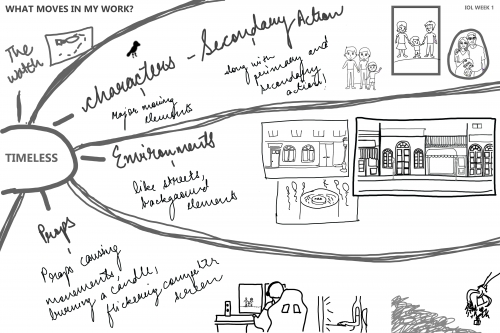 WHAT MOVES IN MY WORK?
IDL WEEK 1
The
watch
characters - Secondary Action
Major moving
elements
along with
primary and
secondary
actions!
TIMELESS
Environments
like streets,
background
elements
Props
Props causing
movements,
burning a candle,
flickering computer
screen